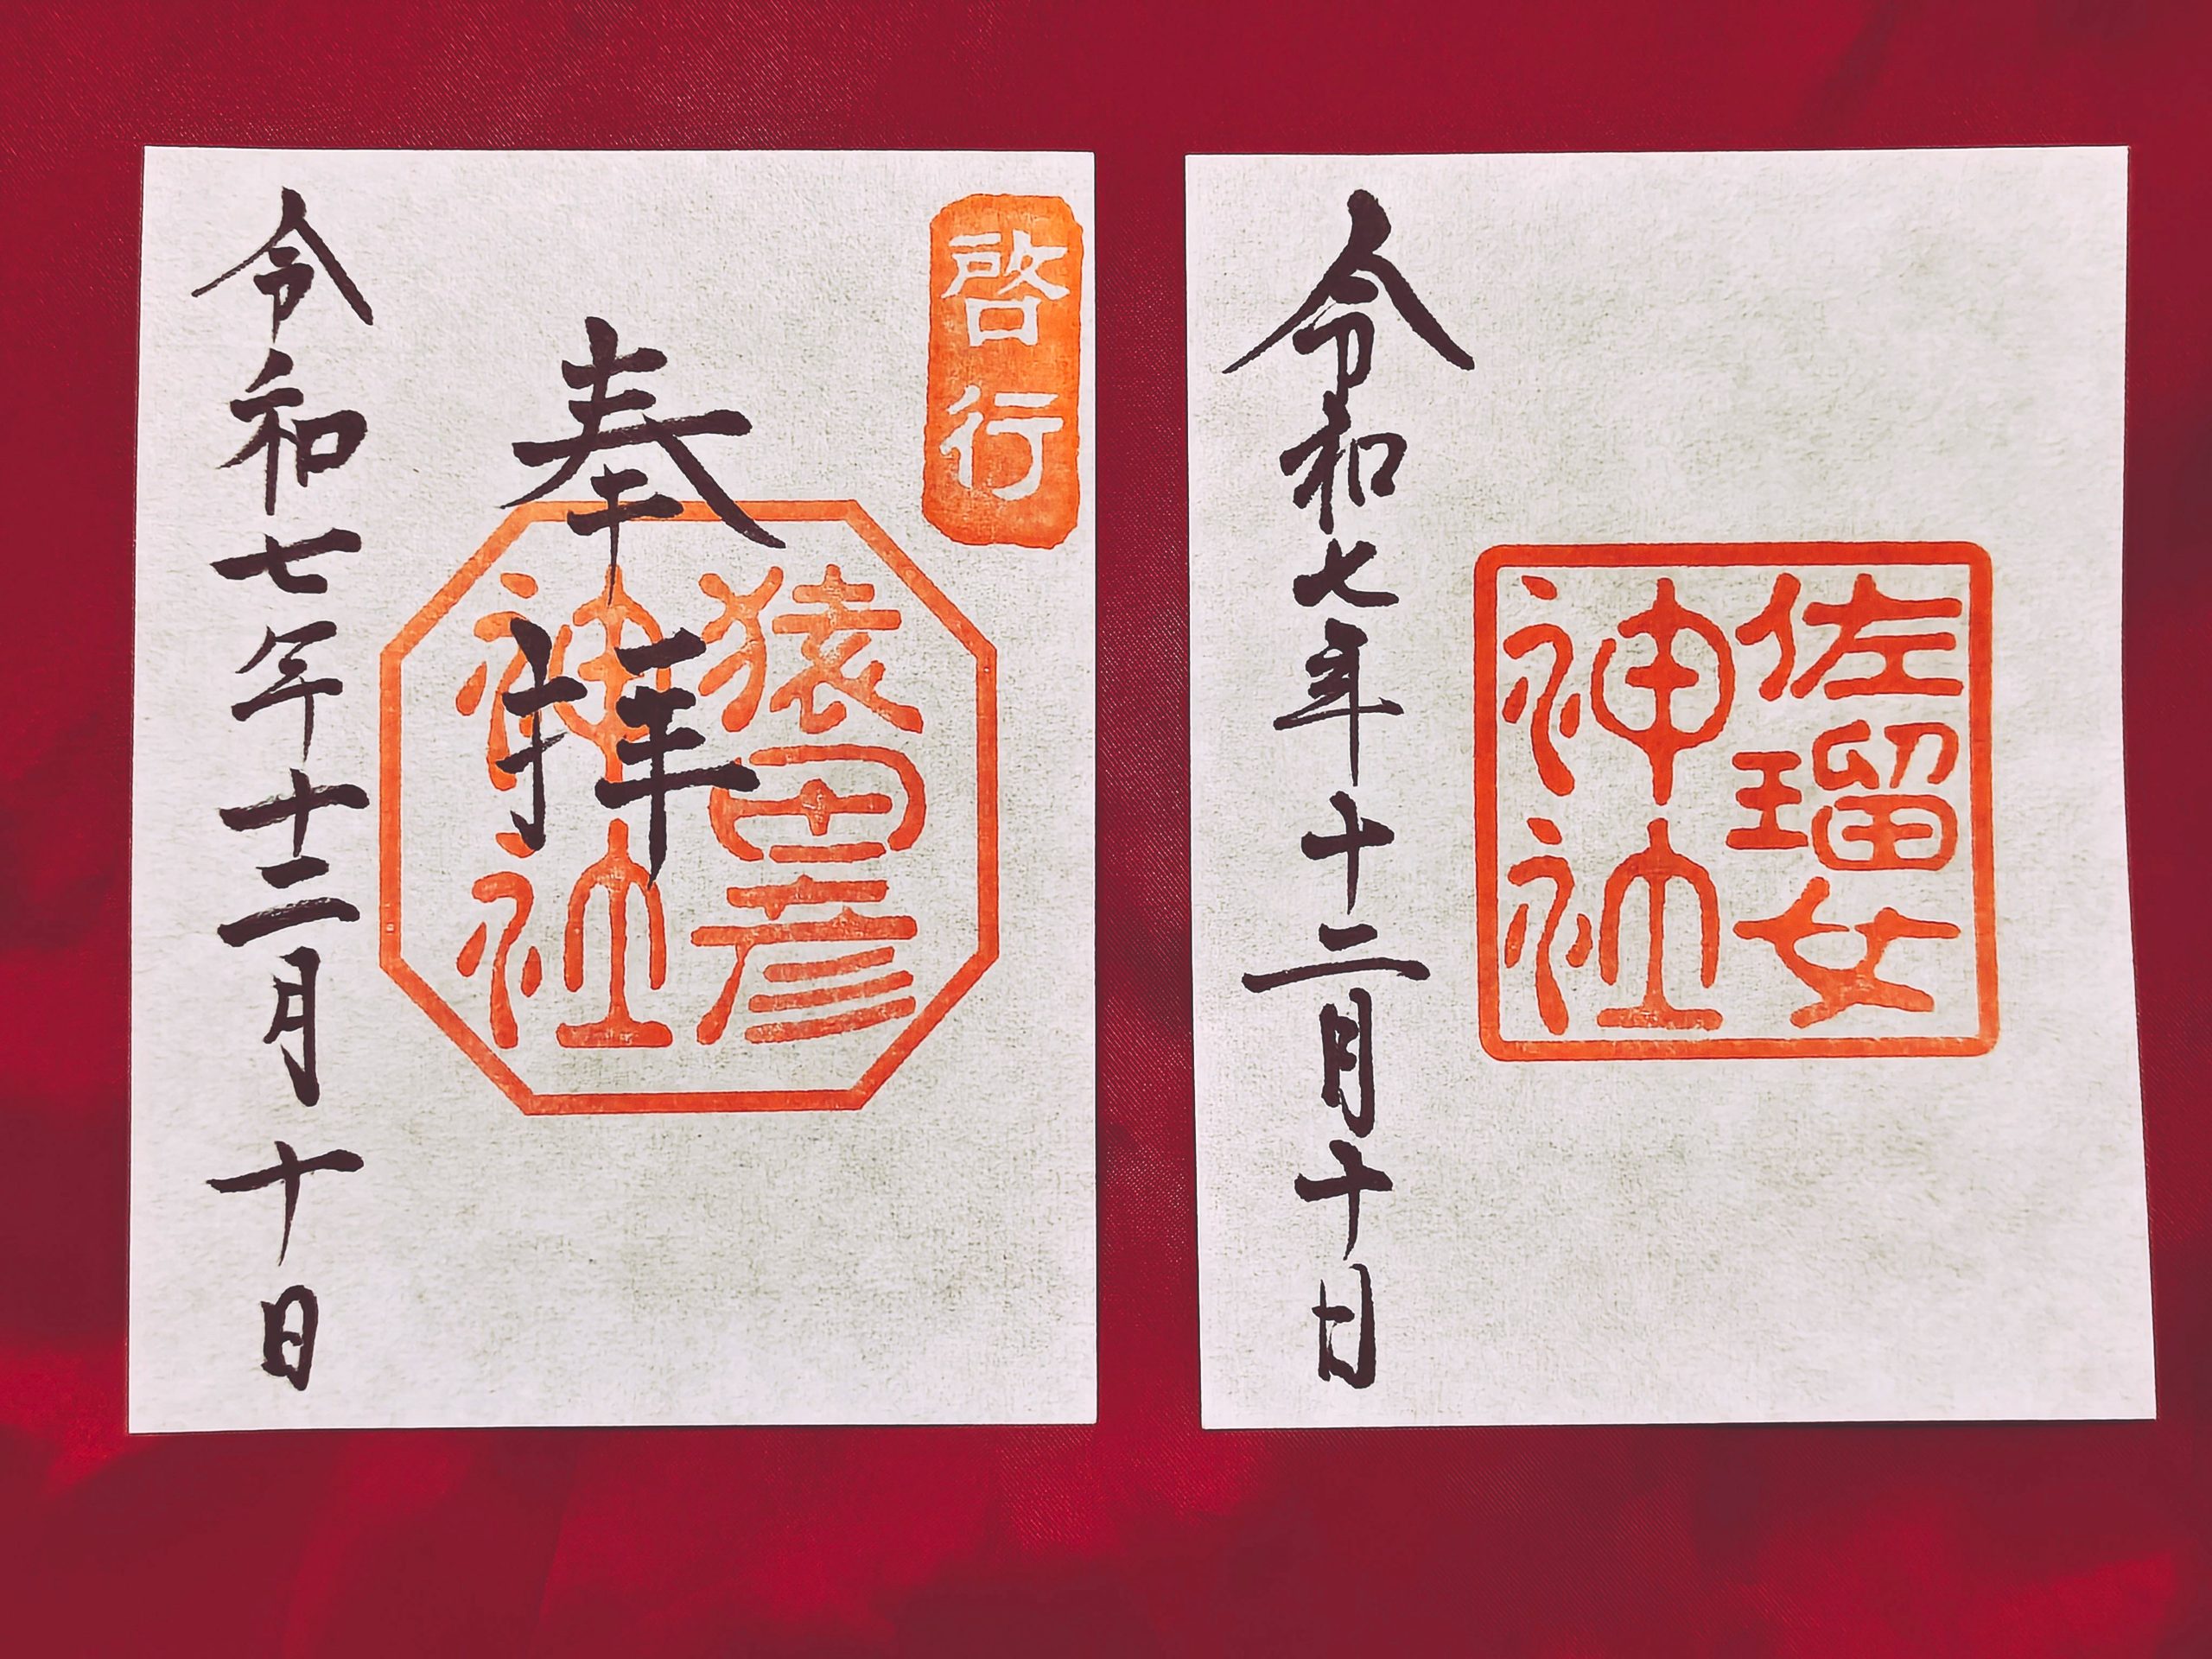 啓行
奉拝
猿田彦
神社
令和七年十二月十日
佐瑠女
神社
令和七年十二月十日